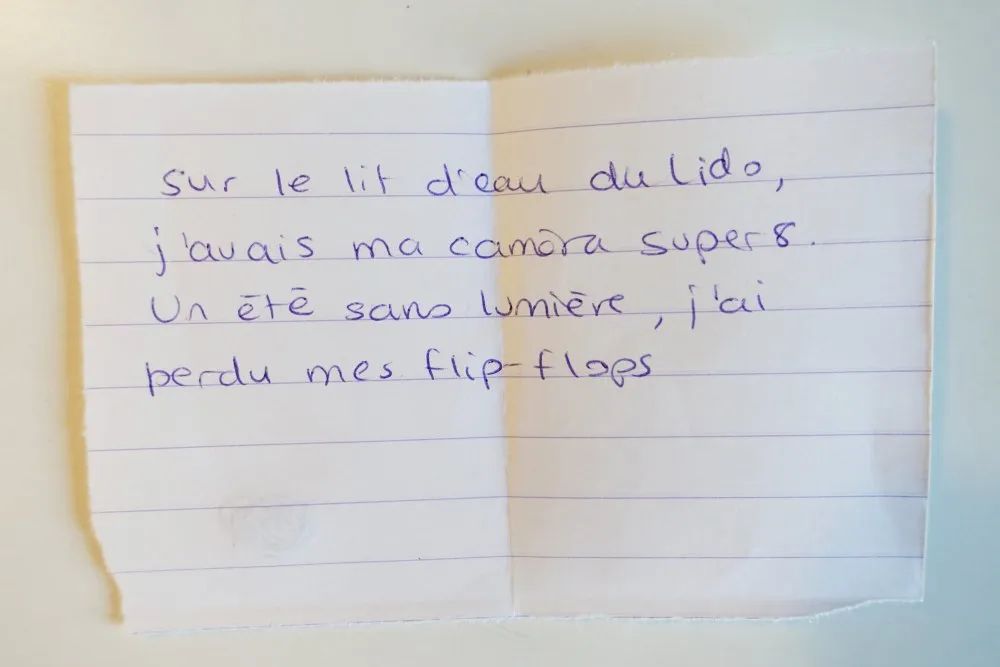 sur le lit d'eau du Lido,
j'avais ma camēra super 8.
Un ētē sans lumière, j'ai
perdu mes flip-flops